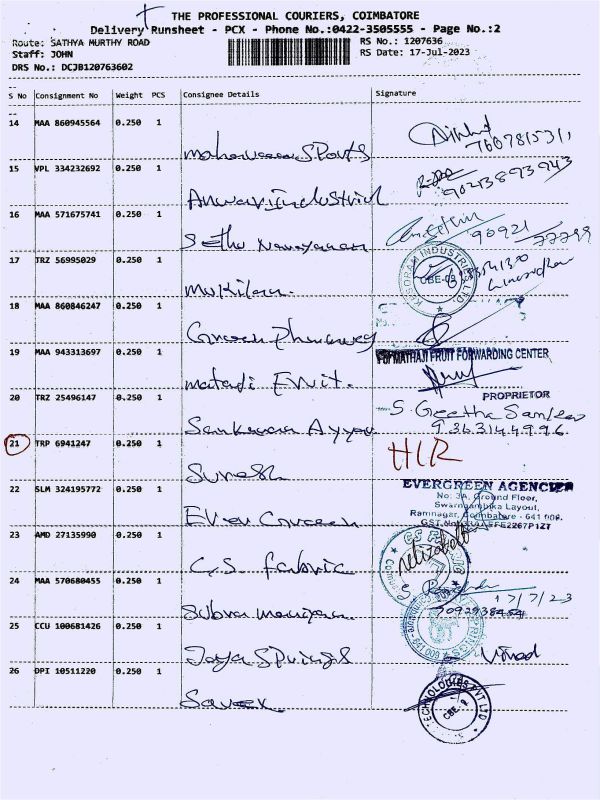 THE PROFESSIONAL COURIERS, COIMBATORE
Delivery Runsheet - PCX - Phone No.:0422-3505555 - Page No.:2
Route: SATHYA MURTHY ROAD
RS No.: 1207636
Staff: JOHN
RS Date: 17-Jul-2023
DRS No.: DCJB120763602
S No Consignment No Weight PCS Consignee Details Signature
14 MAA 860945564 0.250 1
Sports
7607815311
15 VPL 334232692 0.250 1
Industrial
9043893943
16 MAA 571675741 0.250 1
Sethu Narayanan
90921
77799
17 TRZ 56995029 0.250 1
Mukilan.
KESORAM INDUSTRIES LTD.
CBE-09
18 MAA 860846247 0.250 1
Green Pharmacy
19 MAA 943313697 0.250 1
For MATHAJI FRUIT FORWARDING CENTER
Mataji Fruit.
PROPRIETOR
20 TRZ 25496147 0.250 1
S. Geetha
Sankaran Ayyar
9363144996
21 TRP 6941247 0.250 1
HIR
Suresh
22 SLM 324195772 0.250 1
EVERGREEN AGENCIES
No: 3A, Ground Floor,
Swarnambika Layout,
Ramnagar, Coimbatore - 641 009.
Ever Green
23 AMD 27135990 0.250 1
C.S. Fabric
24 MAA 570680455 0.250 1
17/7/23
25 CCU 100681426 0.250 1
Jaya Springs
Vinod
26 DPI 10511220 0.250 1
TECHNOLOGIES PVT LTD
CBE